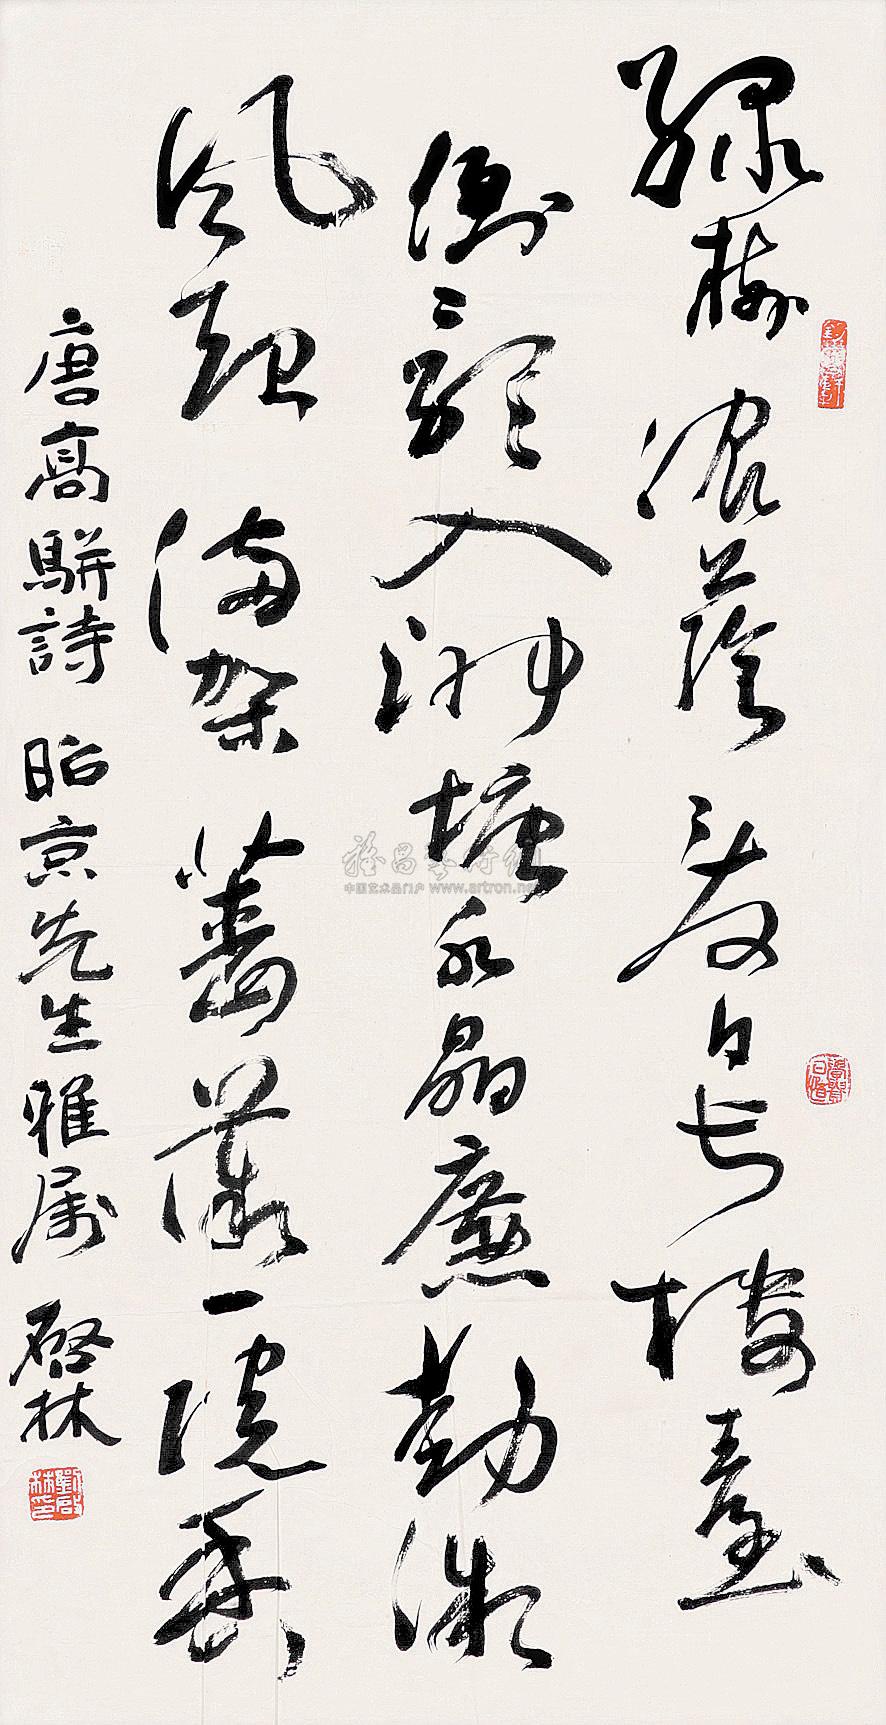 綠樹濃蔭夏日長樓臺
倒影入池塘水晶廉動微
風起滿架薔薇一院香
唐高駢詩 昭京先生雅属 啟林
劉啟林印
雅昌艺术网
中国艺术品门户 www.artron.net